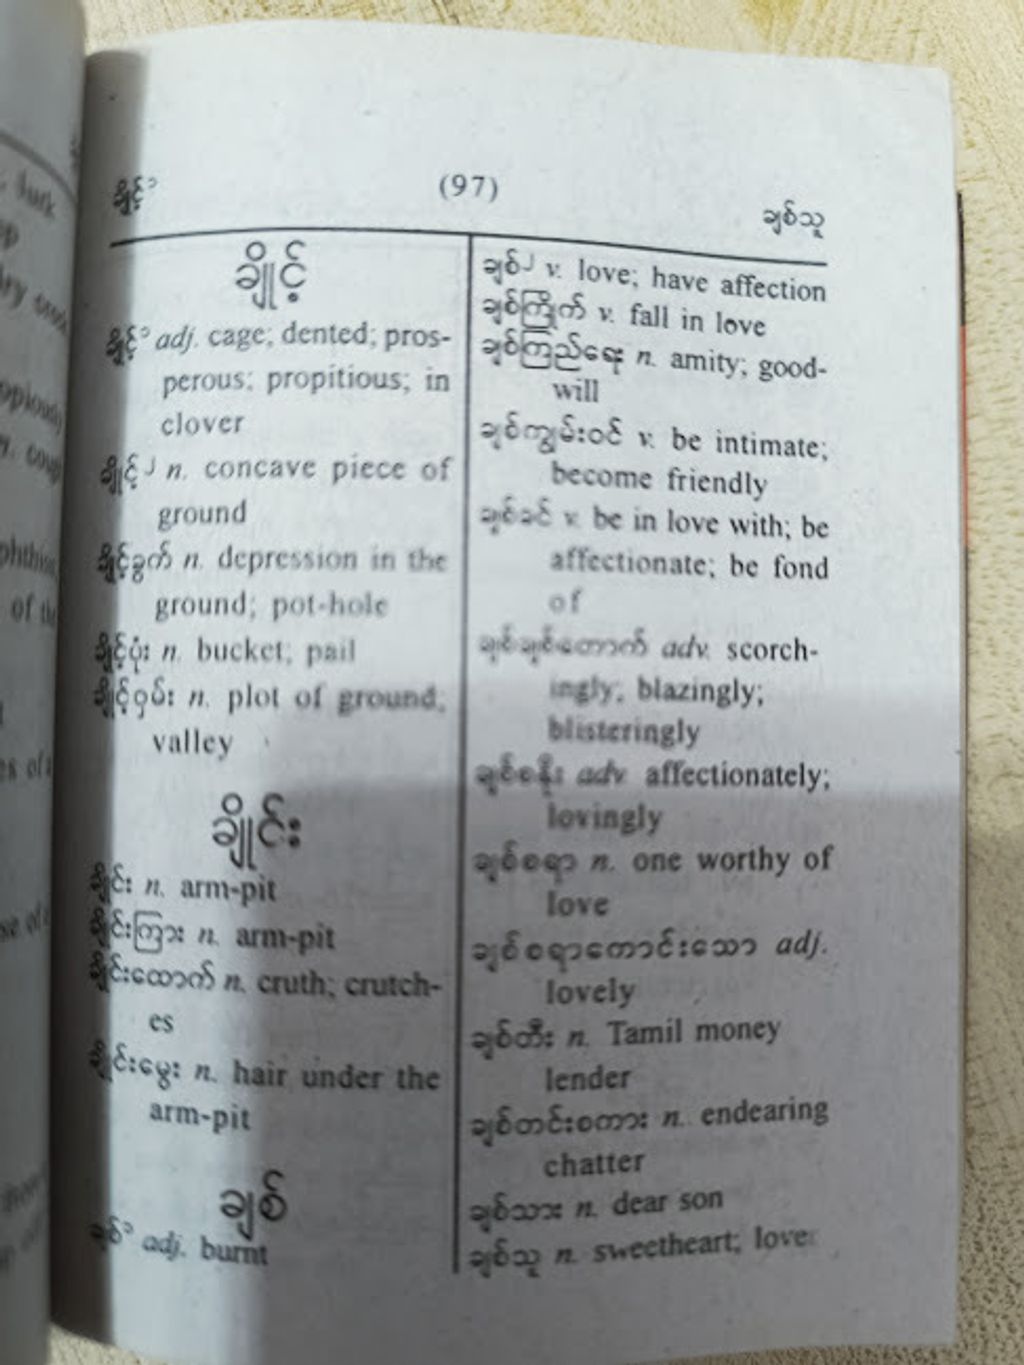 ချိုင့်^၁
(97)
ချစ်သူ
ချိုင့်
ချိုင့်^၁ adj. cage; dented; pros-
perous; propitious; in
clover
ချိုင့်^၂ n. concave piece of
ground
ချိုင့်ခွက် n. depression in the
ground; pot-hole
ချိုင့်ပုံး n. bucket; pail
ချိုင့်ဝှမ်း n. plot of ground;
valley
ချိုင်း
ချိုင်း n. arm-pit
ချိုင်းကြား n. arm-pit
ချိုင်းထောက် n. cruth; crutch-
es
ချိုင်းမွေး n. hair under the
arm-pit
ချစ်
ချစ်^၁ adj. burnt
ချစ်^၂ v. love; have affection
ချစ်ကြိုက် v. fall in love
ချစ်ကြည်ရေး n. amity; good-
will
ချစ်ကျွမ်းဝင် v. be intimate;
become friendly
ချစ်ခင် v. be in love with; be
affectionate; be fond
of
ချစ်ချစ်တောက် adv. scorch-
ingly; blazingly;
blisteringly
ချစ်စနိုး adv affectionately;
lovingly
ချစ်စရာ n. one worthy of
love
ချစ်စရာကောင်းသော adj.
lovely
ချစ်တီး n. Tamil money
lender
ချစ်တင်းစကား n. endearing
chatter
ချစ်သား n. dear son
ချစ်သူ n. sweetheart; lover